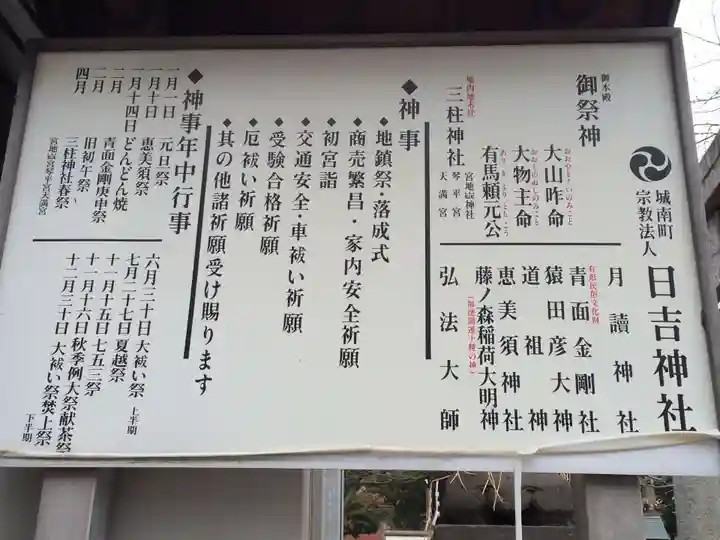 城南町
宗教法人
日吉神社
御本殿
御祭神
大山咋命
おおやまくいのみこと
大物主命
おおものぬしのみこと
有馬頼元公
ありまよりもとこう
境内地名社
三柱神社
宮地嶽神社
琴平宮
天満宮
月讀神社
有形民俗文化財
青面金剛社
猿田彦大神
道祖神
恵美須神社
藤ノ森稲荷大明神
弘法大師
◆神事
◆地鎮祭・落成式
◆商売繁昌・家内安全祈願
◆初宮詣
◆交通安全・車祓い祈願
◆受験合格祈願
◆厄祓い祈願
◆其の他諸祈願受け賜ります
◆神事年中行事
一月一日 元旦祭
一月十日 恵美須祭
一月十四日 どんどん焼
二月 青面金剛庚申祭
二月 旧初午祭
四月 三柱神社春祭
宮地嶽宮琴平宮天満宮
六月三十日 大祓い祭 上半期
七月二十七日 夏越祭
十一月十五日 七五三祭
十一月十六日 秋季例大祭献茶祭
十二月三十日 大祓い祭焚上祭 下半期